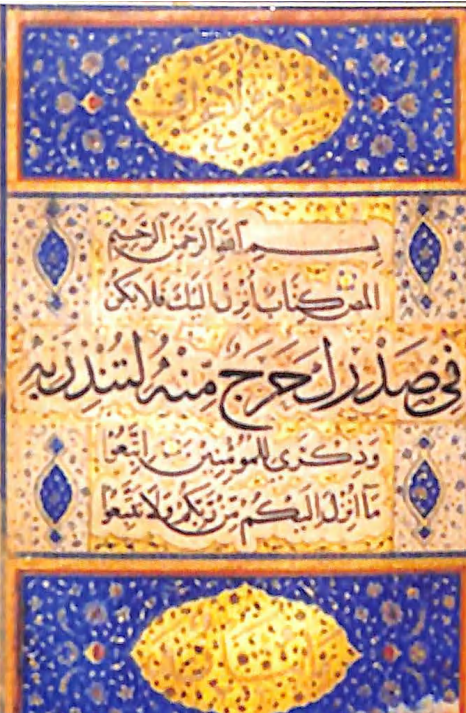 سورة الاعراف
بسم الله الرحمن الرحيم
المص كتاب انزل اليك فلا يكن
في صدرك حرج منه لتنذر به
وذكرى للمؤمنين اتبعوا
ما انزل اليكم من ربكم ولا تتبعوا